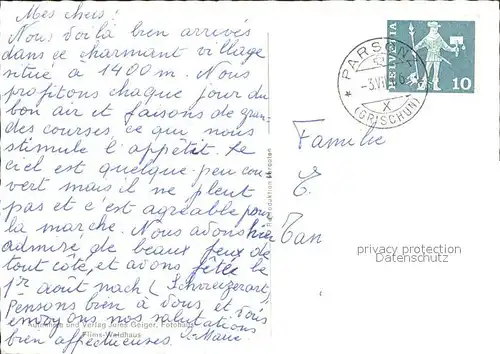 Mes chers!
Nous voilà bien arrivés
dans ce charmant village
situé à 1400 m. Nous
profitons chaque jour du
bon air et faisons de gran-
des courses, ce qui nous
stimule l'appétit. Le
ciel est quelque-peu cou-
vert mais il ne pleut
pas et c'est agréable pour
la marche. Nous avons hier
admiré de beaux feux de
tout côté, et avons fêté le
1er août nach Schweizerart.
Pensons bien à vous, et vous
envoyons nos salutations
bien affectueuses. Marie
Aufnahme und Verlag Jules Geiger, Fotohaus
Flims-Waldhaus
Reproduktion verboten
PARSONZ
(GRISCHUN)
X
HELVETIA
10
Familie
E.
Tan
privacy protection
Datenschutz